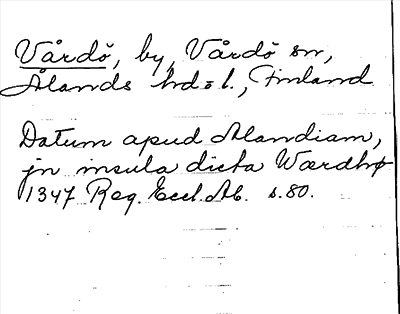 Vårdö, by, Vårdö sn,
Ålands hd = l., Finland
Datum apud Alandiam,
jn insula dicta Wærdhø
1347 Reg. Eccl. Ab. s.80.